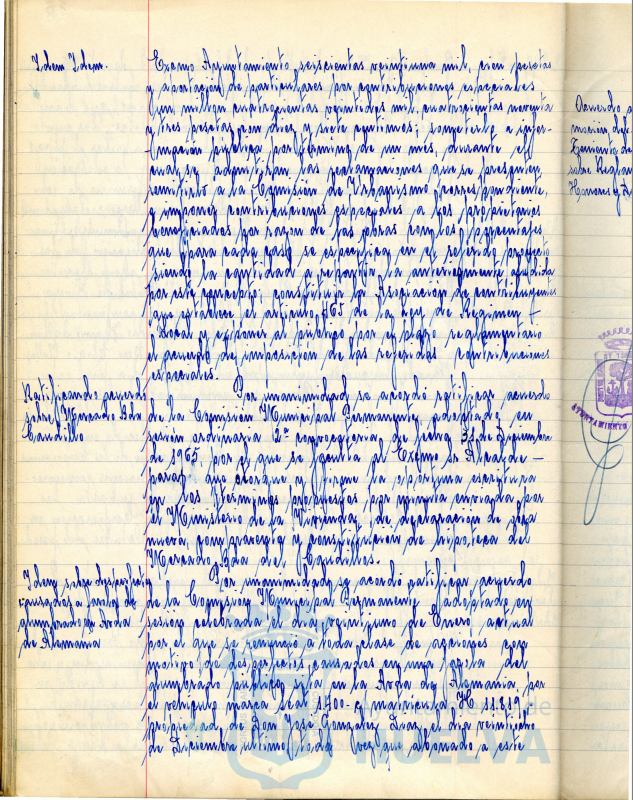 Idem Idem.
Excmo Ayuntamiento, seiscientas veintiuna mil, cien pesetas
y aportación de particulares por contribuciones especiales
Un millon cuatrocientas veintidos mil, cuatrocientas noventa
y tres pesetas con diez y siete centimos; someterlo a infor-
mación pública por término de un mes, durante el
cual se admitiran las reclamaciones que se presenten,
remitirlo a la Comisión de Urbanismo correspondiente,
e imponer contribuciones especiales a los propietarios
beneficiados por razon de las obras con los porcentajes
que para cada caso se especifica en el referido proyecto
siendo la cantidad a repartir la anteriormente aludida
por este concepto; constituir la Asociación de contribuyentes
que establece el articulo 465 de la Ley de Regimen
Local y exponer al público por el plazo reglamentario
el acuerdo de imposición de las referidas contribuciones
especiales.
Ratificando acuerdo
sobre Mercado Bda
Caudillo
Por unanimidad se acordó ratificar acuerdo
de la Comisión Municipal Permanente adoptado en
sesión ordinaria 2ª convocatoria de fecha 31 de Diciembre
de 1965, por el que se faculta al Excmo Sr Alcalde
para que otorgue y firme la oportuna escritura
en los terminos propuestos por minuta enviada por
el Ministerio de la Vivienda, de declaración de obra
nueva, compraventa y constitución de hipoteca del
Mercado Bda del Caudillo.
Idem sobre desperfectos
causados a farola de
alumbrado en Avda
de Alemania
Por unanimidad se acordó ratificar acuerdo
de la Comisión Municipal Permanente adoptado en
sesión celebrada el dia veintiuno de Enero actual
por el que se renuncia a toda clase de acciones con
motivo de desperfectos causados en una farola del
alumbrado público sita en la Avda de Alemania, por
el vehiculo marca Seat 1400-C matricula H 11.819,
propiedad de Don José Gonzalez Diaz, el dia veintiocho
de Diciembre ultimo, toda vez que abonado a este
Acuerdo
Teniente de
sobre Reglam
Honores y
AYUNTAMIENTO
de
HUELVA